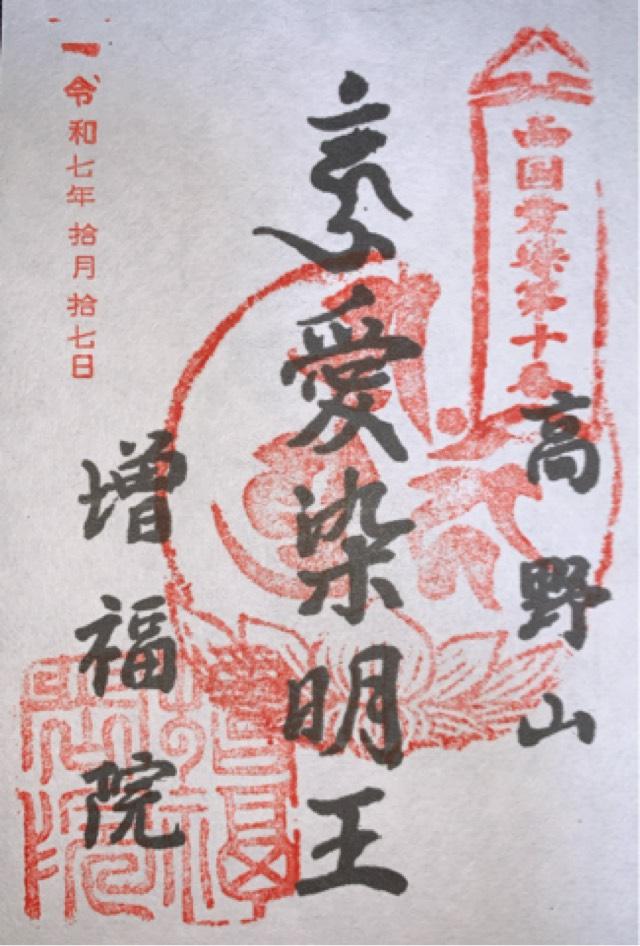 高野山
西国愛染第十
愛染明王
増福院
令和七年拾月拾七日